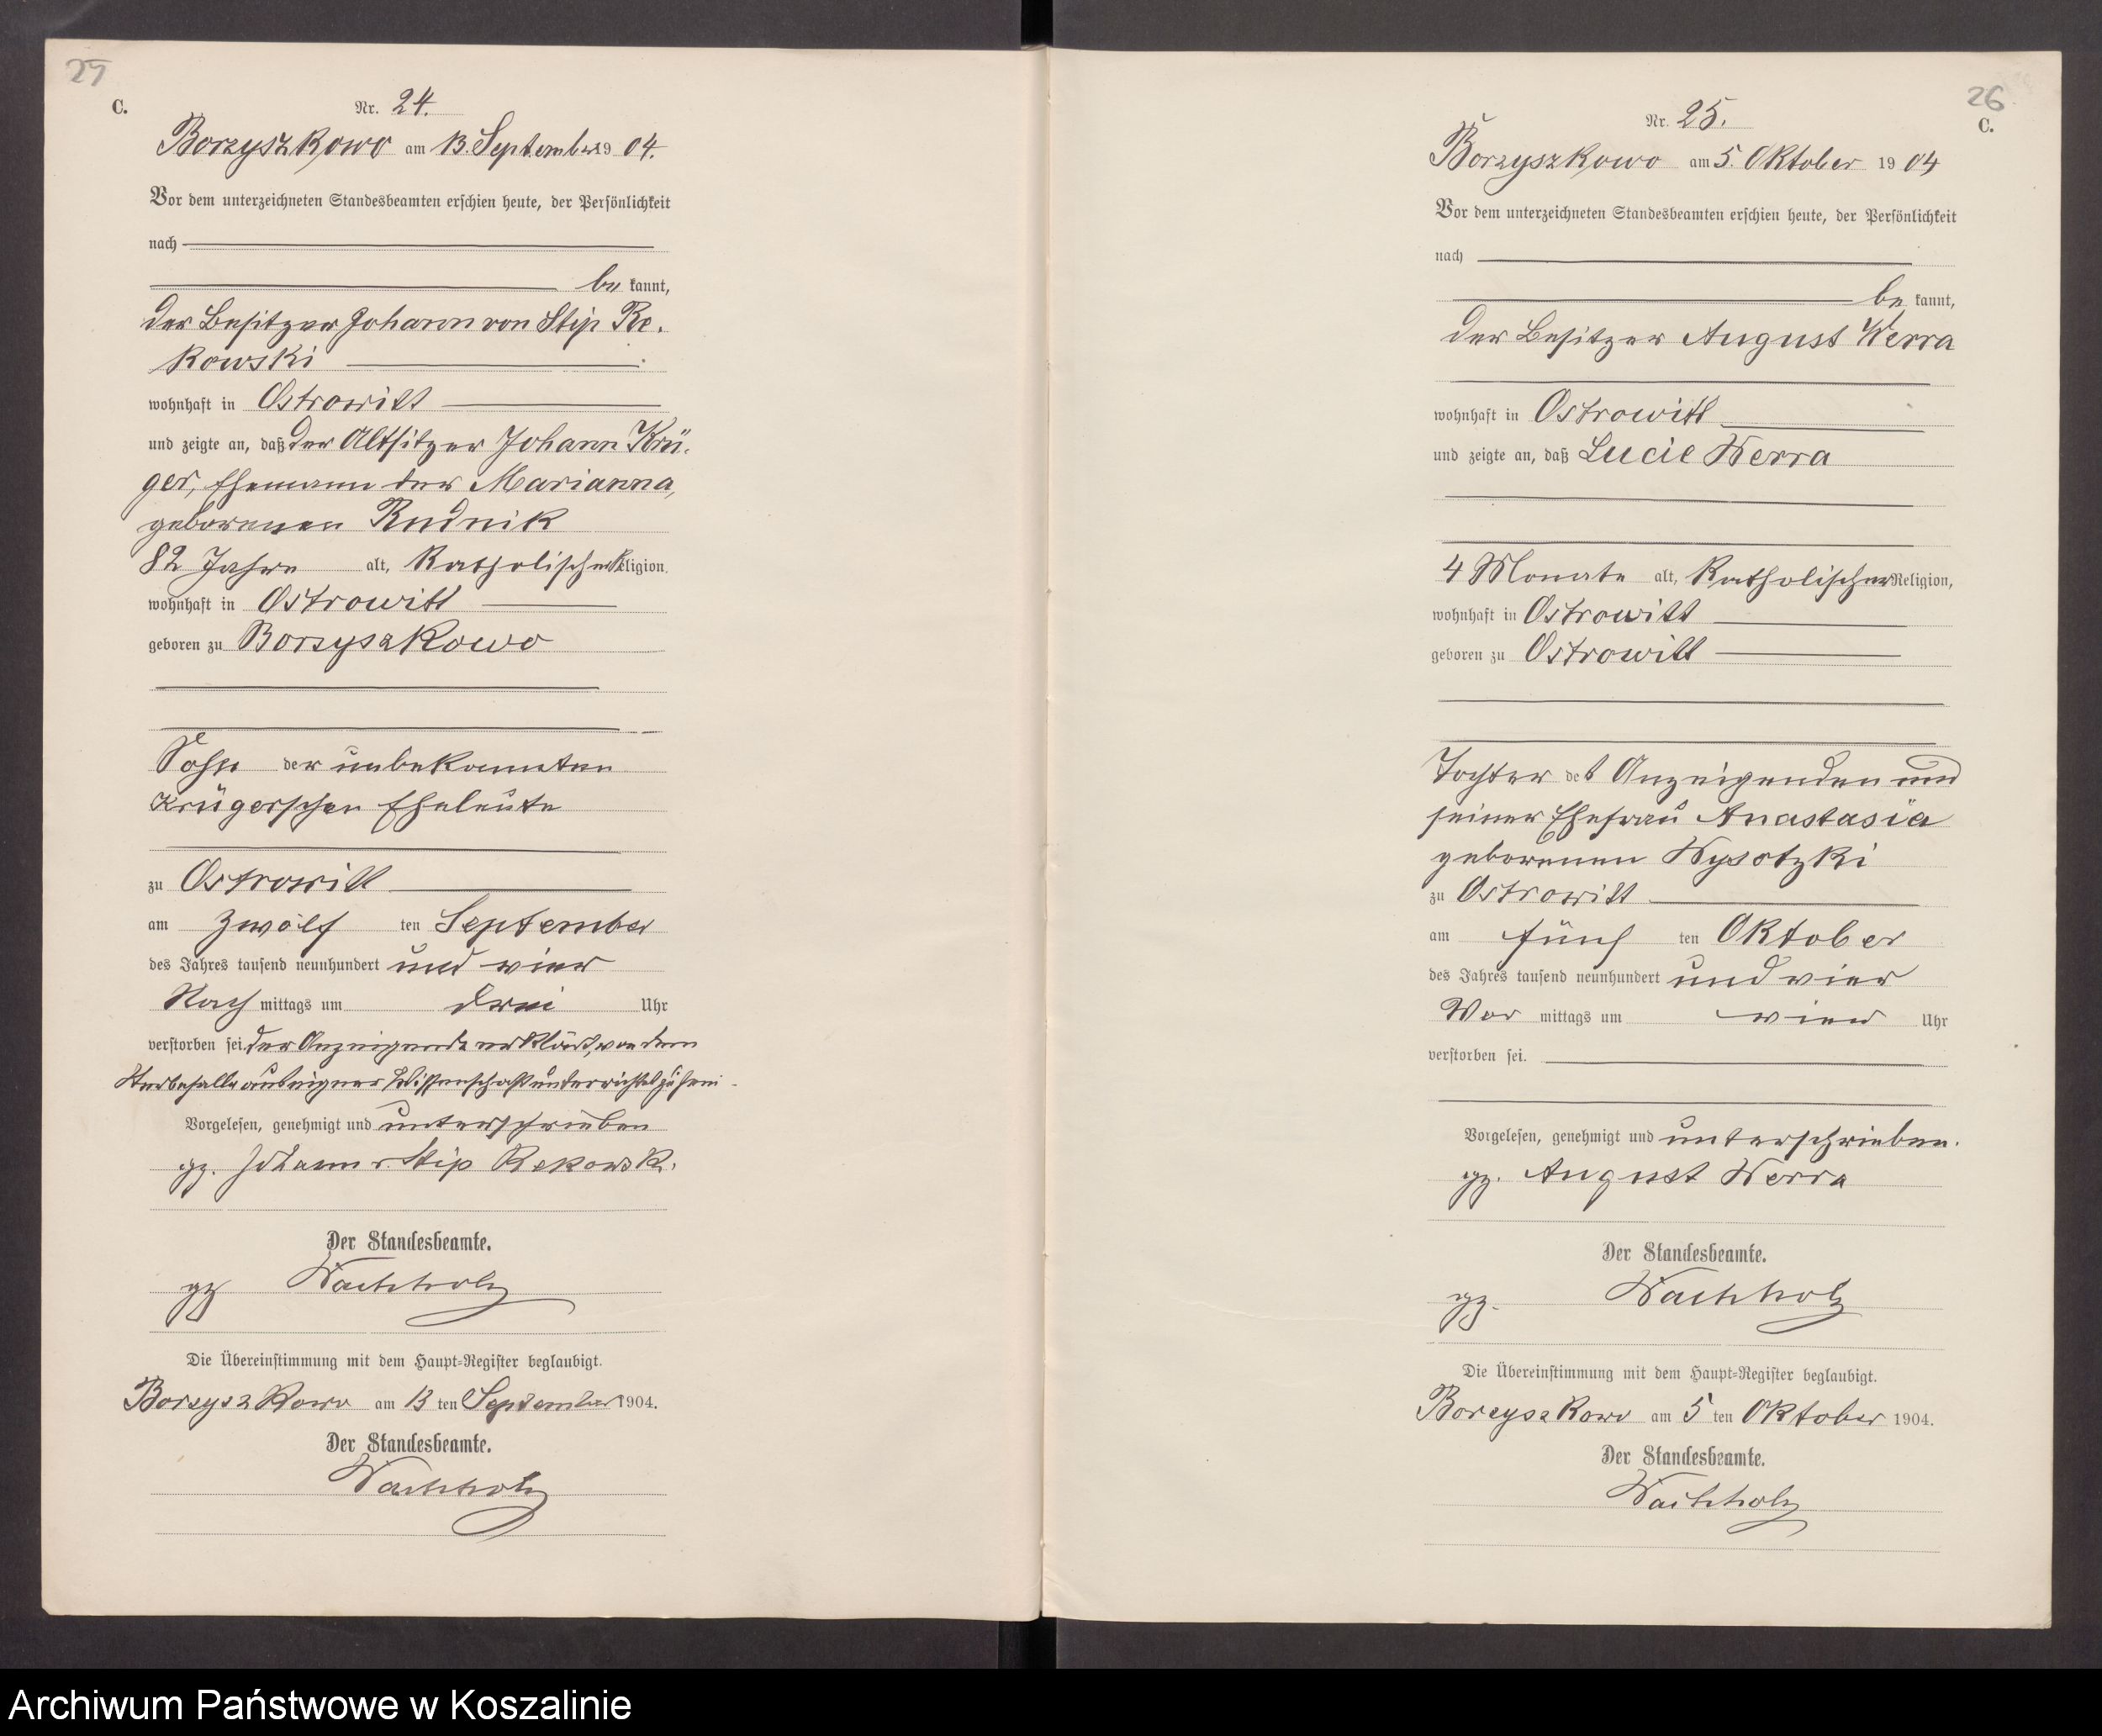 25
C.
Nr. 24.
Borzyszkowo am 13. September 19 04.
Vor dem unterzeichneten Standesbeamten erschien heute, der Persönlichkeit
nach
be kannt,
der Besitzer Johann von Stip Re-
kowski
wohnhaft in Ostrowitt
und zeigte an, daß der Altsitzer Johann Krü-
ger, Ehemann der Marianna,
geborenen Rudnik
82 Jahre alt, katholischer Religion,
wohnhaft in Ostrowitt
geboren zu Borzyszkowo
Sohn der unbekannten
Krügerschen Eheleute
zu Ostrowitt
am zwölf ten September
des Jahres tausend neunhundert und vier
Nach mittags um drei Uhr
verstorben sei. Der Anzeigende erklärt, von dem
Sterbefalle aus eigner Wissenschaft unterrichtet zu sein.
Vorgelesen, genehmigt und unterschrieben
gz. Johann v. Stip Rekowski
Der Standesbeamte.
gz Wachholz
Die Übereinstimmung mit dem Haupt-Register beglaubigt.
Borzyszkowo am 13 ten September 1904.
Der Standesbeamte.
Wachholz
26
C.
Nr. 25.
Borzyszkowo am 5. Oktober 19 04
Vor dem unterzeichneten Standesbeamten erschien heute, der Persönlichkeit
nach
be kannt,
der Besitzer August Werra
wohnhaft in Ostrowitt
und zeigte an, daß Lucie Werra
4 Monate alt, katholischer Religion,
wohnhaft in Ostrowitt
geboren zu Ostrowitt
Tochter des Anzeigenden und
seiner Ehefrau Anastasia
geborenen Wysotzki
zu Ostrowitt
am fünf ten Oktober
des Jahres tausend neunhundert und vier
Vor mittags um vier Uhr
verstorben sei.
Vorgelesen, genehmigt und unterschrieben.
gz. August Werra
Der Standesbeamte.
gz. Wachholz
Die Übereinstimmung mit dem Haupt-Register beglaubigt.
Borzyszkowo am 5 ten Oktober 1904.
Der Standesbeamte.
Wachholz
Archiwum Państwowe w Koszalinie